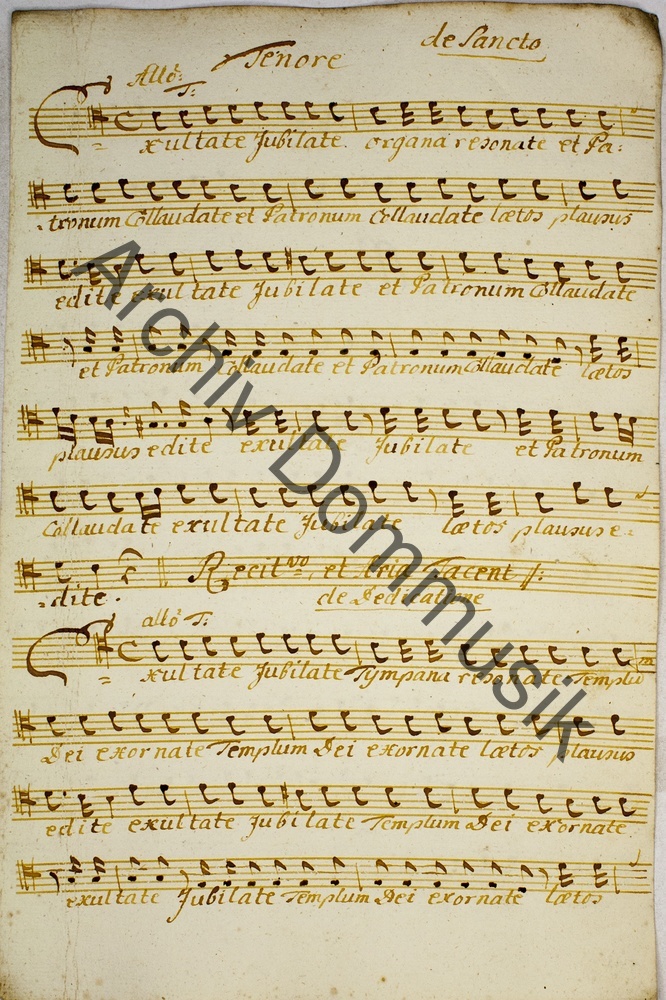 de Sancto
Tenore
Allo: T:
Exultate Jubilate. organa resonate et Pa:
:tronum Collaudate et Patronum Collaudate lætos plausus
edite exultate Jubilate et Patronum Collaudate
et Patronum Collaudate et Patronum Collaudate lætos
plausus edite exultate Jubilate et Patronum
Collaudate exultate Jubilate lætos plausus e:
:dite. Recit:vo et Aria Tacent //:
de Dedicatione
allo: T:
Exultate Jubilate Tympana resonate Templum
Dei exornate Templum Dei exornate lætos plausus
edite exultate Jubilate Templum Dei exornate
exultate Jubilate Templum Dei exornate lætos
Archiv Dommusik